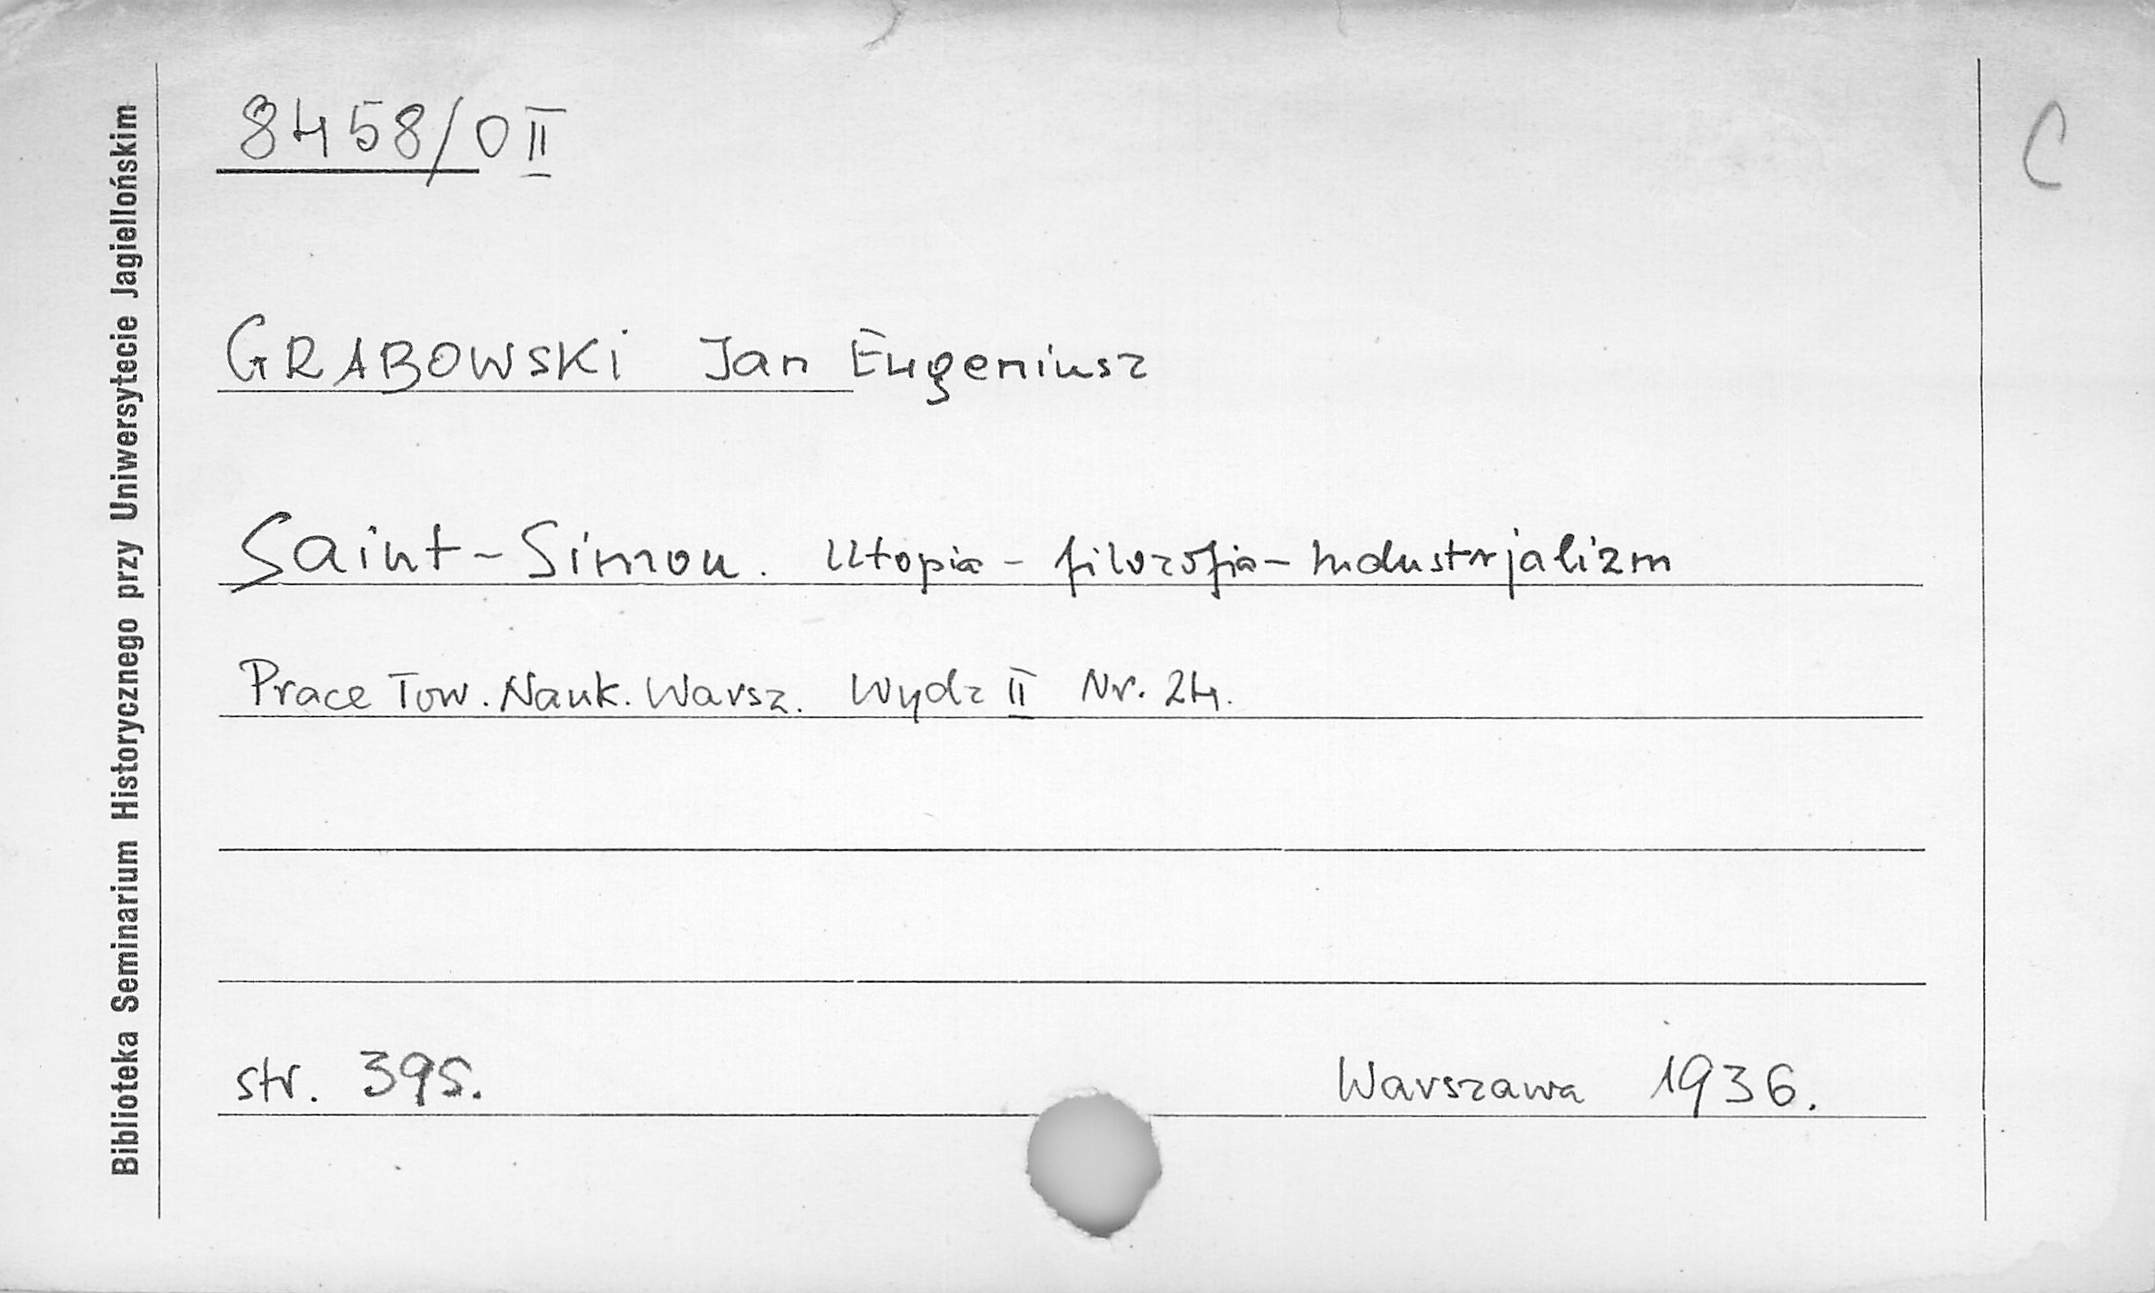 8458/0 II
C
GRABOWSKI Jan Eugeniusz
Saint-Simon. Utopia - filozofia - Industrjalizm
Prace Tow. Nauk. Warsz. Wydz II Nr. 24.
str. 395.
Warszawa 1936.
Biblioteka Seminarium Historycznego przy Uniwersytecie Jagiellońskim